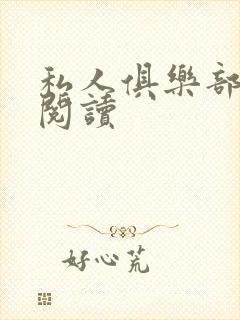 私人俱樂部
閱讀
好心荒